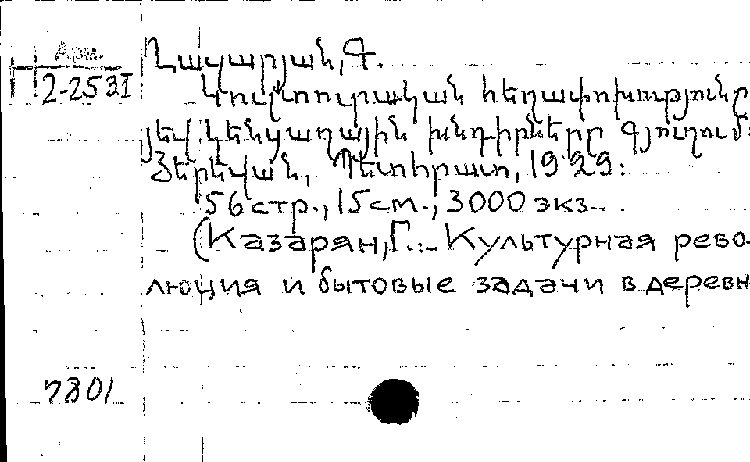 Арм.
2-2531
Ղազարյան, Գ.
Կուլտուրական հեղափոխությունը
յեվ կենցաղային խնդիրները գյուղում:
Յերեվան, Պետհրատ, 1929:
56 стр., 15 см., 3000 экз.
(Казарян, Г. - Культурная рево-
люция и бытовые задачи в деревн
7801